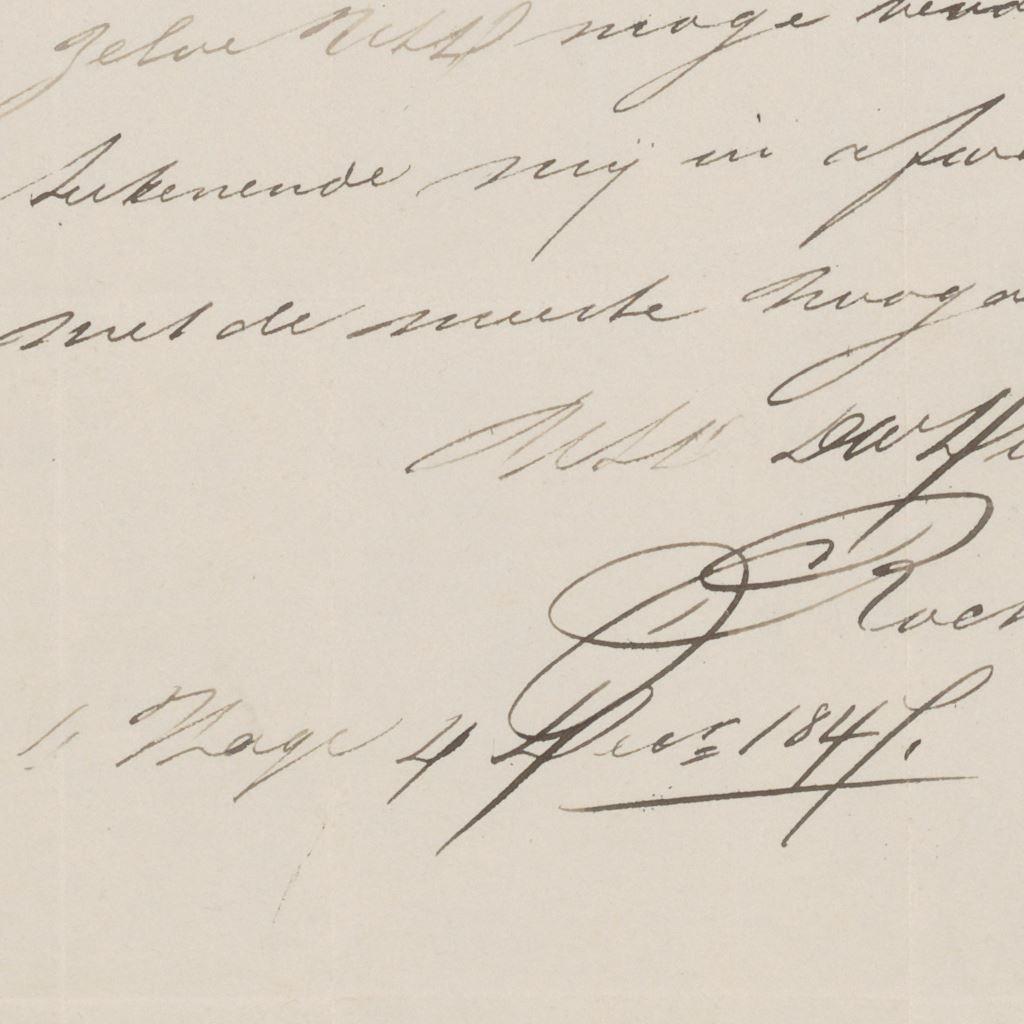 gelve UEd moge
teekenende mij in afw
met de meeste hoog
UEd DW
Roch
s Hage 4 Decr 184